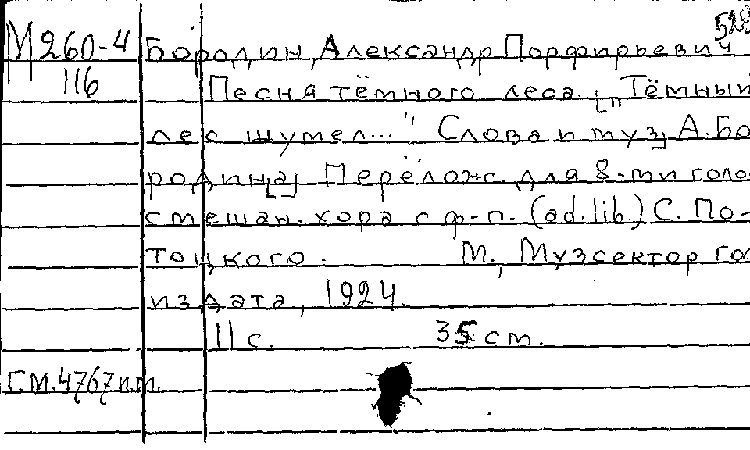 528
М 260-4 Бородин, Александр Порфирьевич
116 Песня тёмного леса. [„Тёмный
лес шумел..." Слова и муз] А. Бо
родин[а] Перелож для 8-ми голо
смешан. хора с ф-п. (ad.lib) С. По-
тоцкого. М., Музсектор Гос
издата, 1924.
11 с. 35 ст.
см. 4767 п.т.